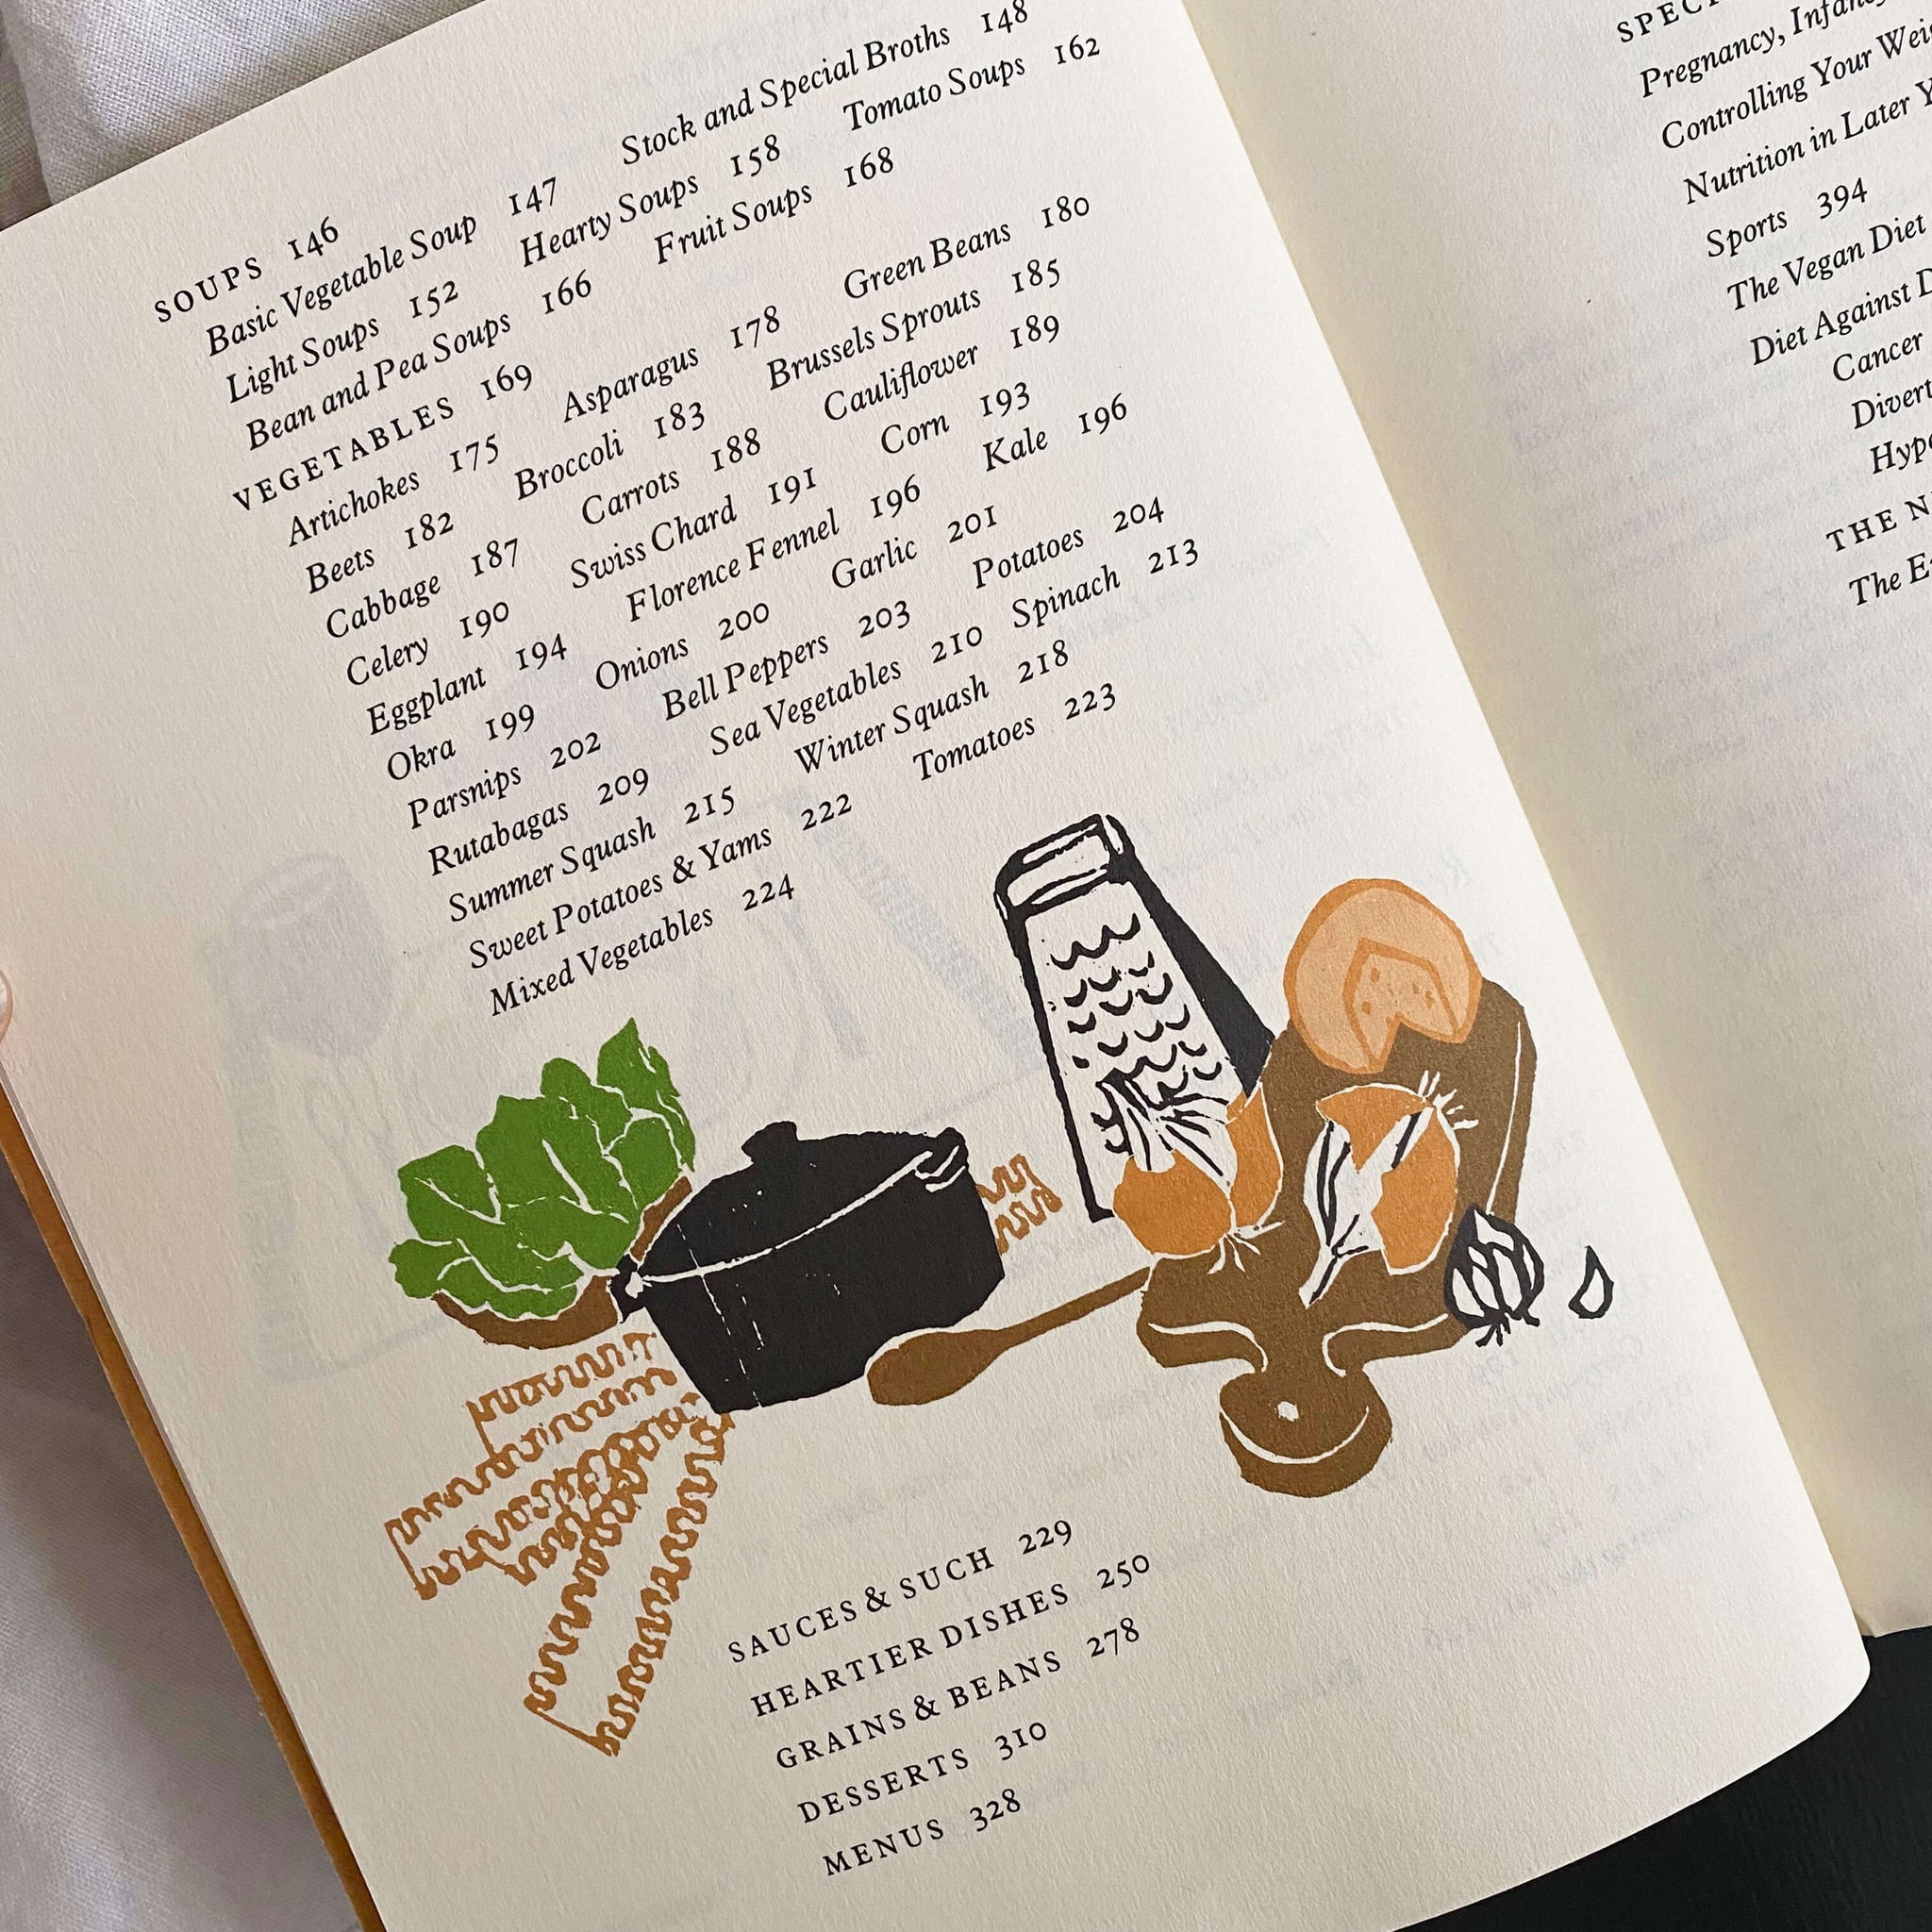 SOUPS 146
Basic Vegetable Soup 147 Stock and Special Broths 148
Light Soups 152 Hearty Soups 158 Tomato Soups 162
Bean and Pea Soups 166 Fruit Soups 168
VEGETABLES 169
Artichokes 175 Asparagus 178 Green Beans 180
Beets 182 Broccoli 183 Brussels Sprouts 185
Cabbage 187 Carrots 188 Cauliflower 189
Celery 190 Swiss Chard 191 Corn 193
Eggplant 194 Florence Fennel 196 Kale 196
Okra 199 Onions 200 Garlic 201
Parsnips 202 Bell Peppers 203 Potatoes 204
Rutabagas 209 Sea Vegetables 210 Spinach 213
Summer Squash 215 Winter Squash 218
Sweet Potatoes & Yams 222 Tomatoes 223
Mixed Vegetables 224
SAUCES & SUCH 229
HEARTIER DISHES 250
GRAINS & BEANS 278
DESSERTS 310
MENUS 328
Pregnancy,
Controlling Your
Nutrition in Later
Sports 394
The Vegan Diet
Diet Against
Cancer
THE
The